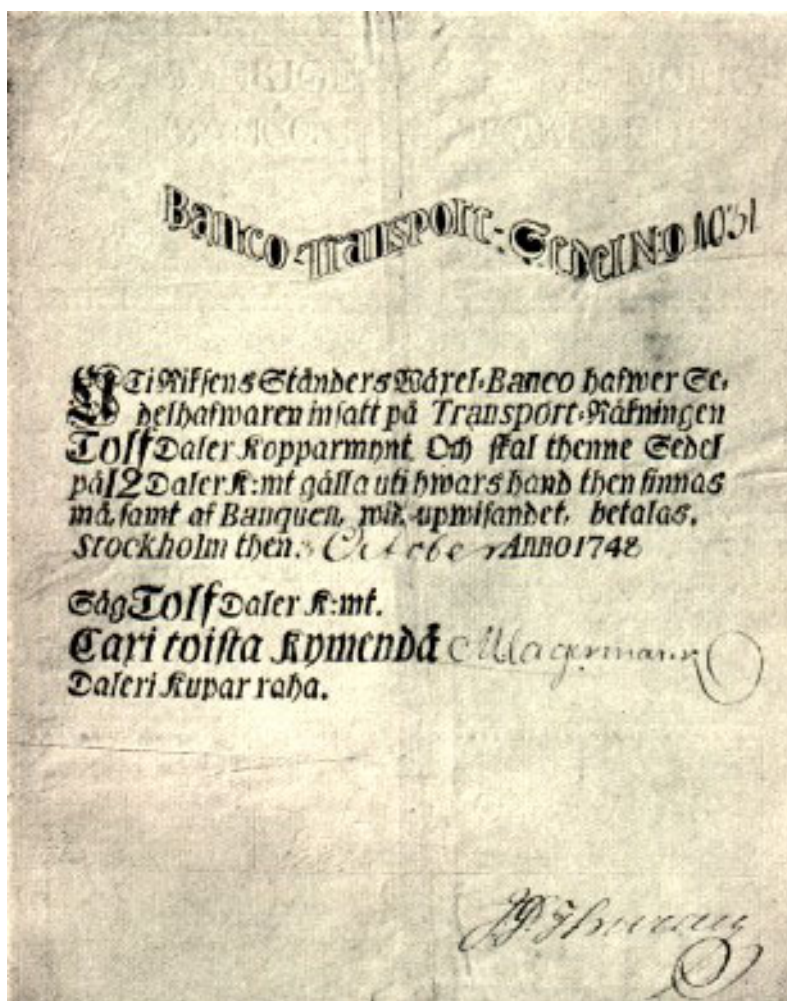 Banco-Transport-Sedel N:o 1031
UTi Riksens Ständers Wäxel-Banco hafwer Se-
delhafwaren insatt på Transport-Räkningen
Tolf Daler Kopparmynt. Och skal thenne Sedel
på 12 Daler K:mt gälla uti hwars hand then finnas
må, samt af Banquen, wid upwisandet, betalas.
Stockholm then October ANNO 1748
Säg Tolf Daler K:mt.
Caxi toista kymendä
Daleri Kupar raha.